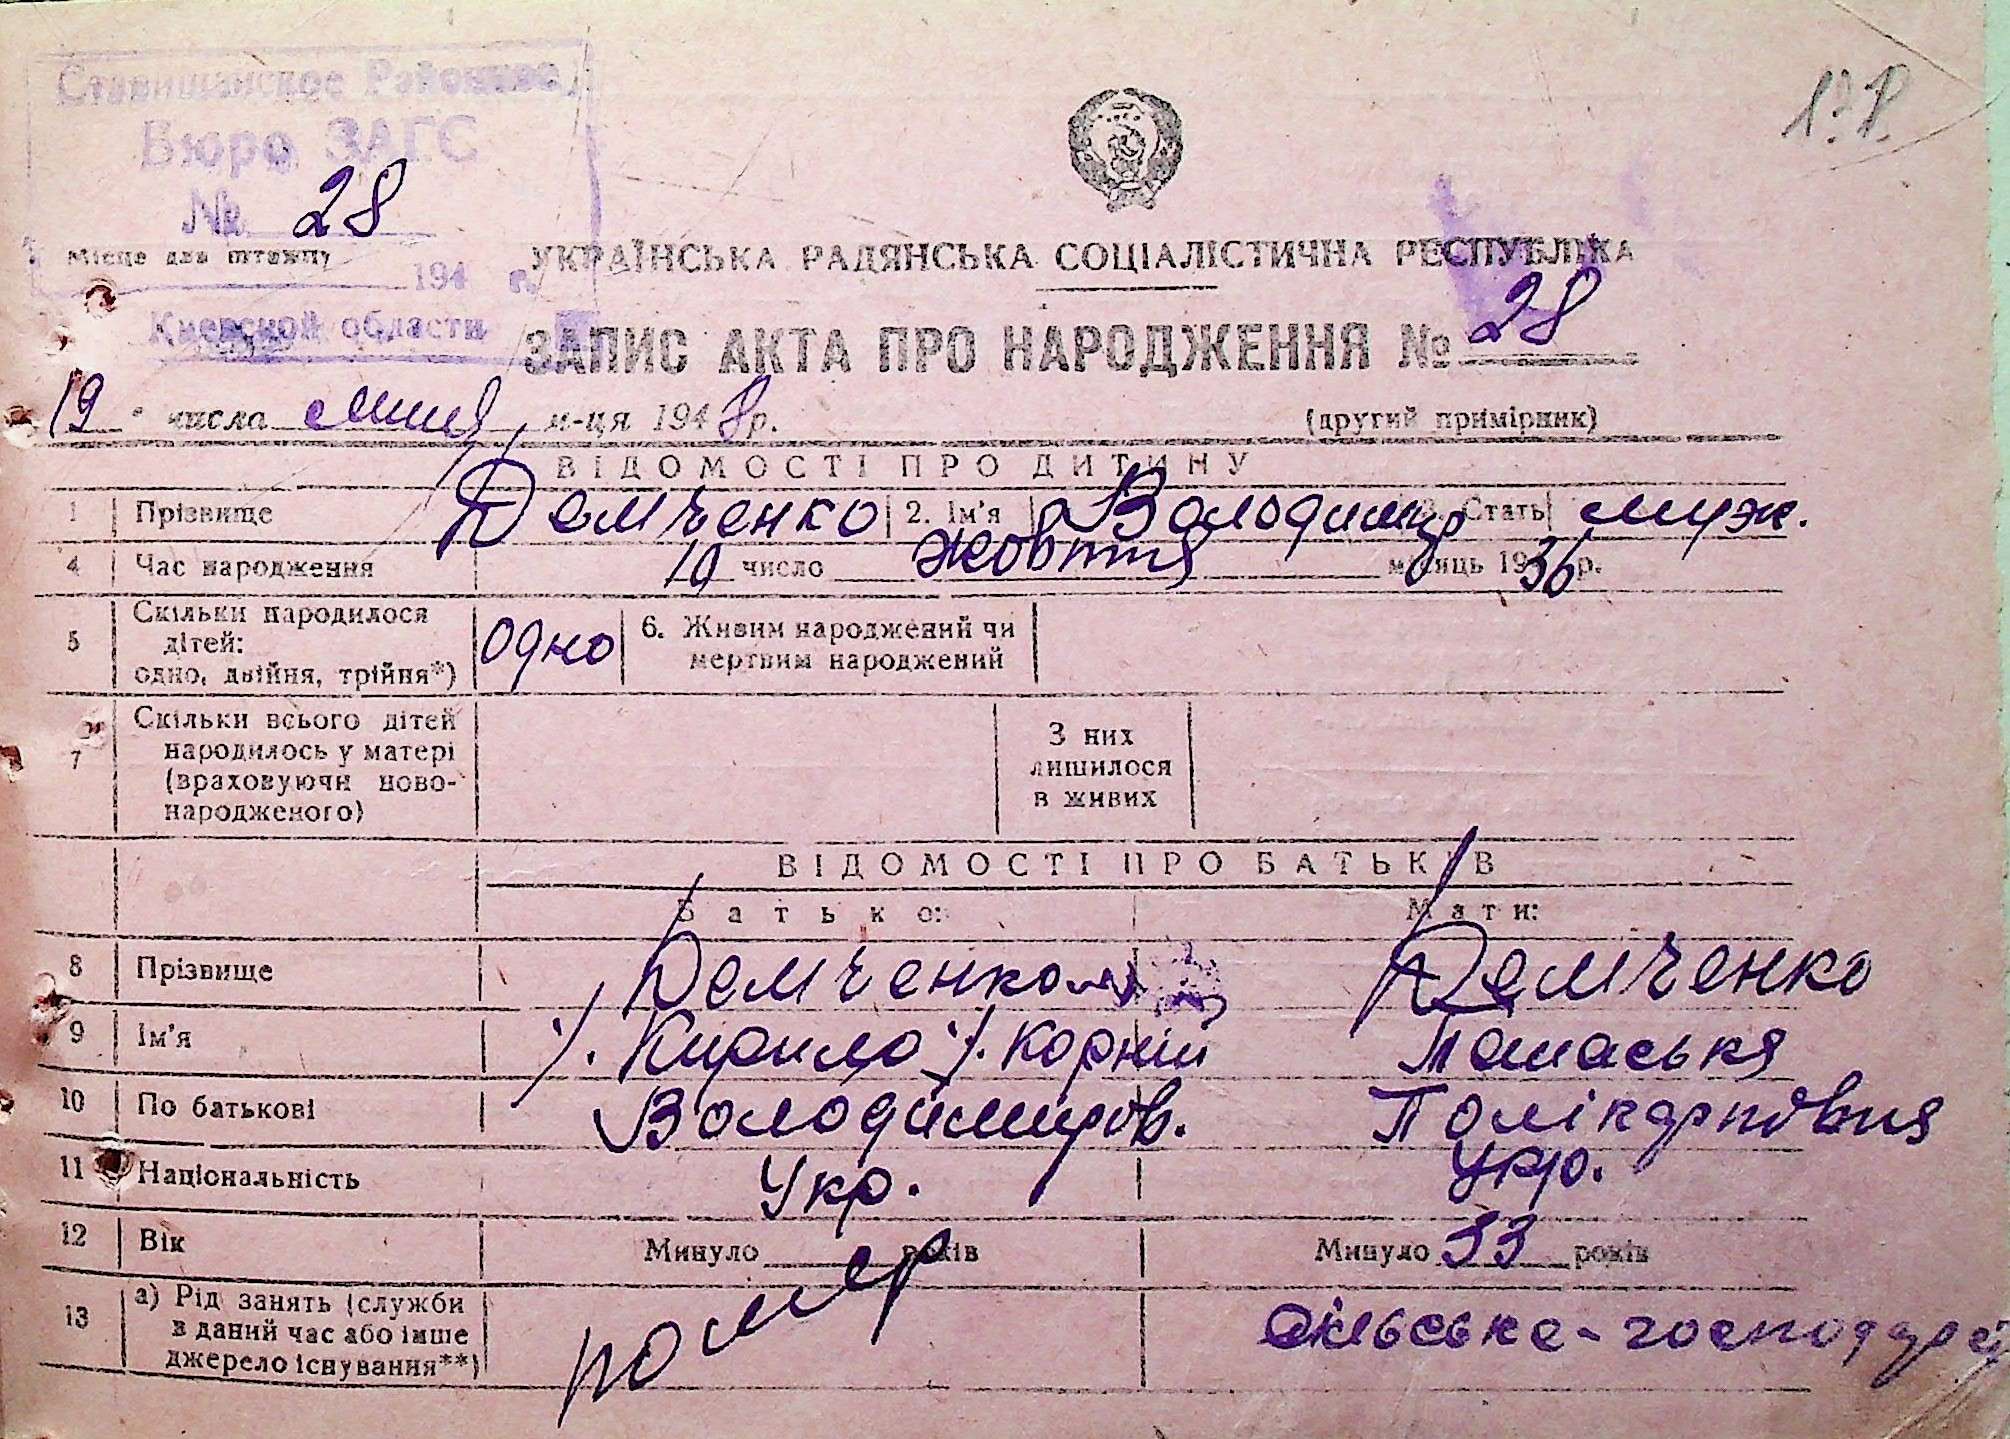 Ставищанское Районное
Бюро ЗАГС
№ 28
Місце для штампу
194 г.
Киевской области
УКРАЇНСЬКА РАДЯНСЬКА СОЦІАЛІСТИЧНА РЕСПУБЛІКА
ЗАПИС АКТА ПРО НАРОДЖЕННЯ № 28
19 числа липня м-ця 1948 р.
(другий примірник)
ВІДОМОСТІ ПРО ДИТИНУ
1 Прізвище Демченко 2. Ім'я Володимир 3. Стать муж.
4 Час народження 10 число жовтня місяць 1936 р.
5 Скільки народилося дітей: одно, двійня, трійня*) одно 6. Живим народжений чи мертвим народжений
7 Скільки всього дітей народилось у матері (враховуючи ново-народженого) З них лишилося в живих
ВІДОМОСТІ ПРО БАТЬКІВ
Батько: Мати:
8 Прізвище Демченко Демченко
9 Ім'я Кирило Корній Панаська
10 По батькові Володимиров. Полікарповня
11 Національність Укр. Укр.
12 Вік Минуло років Минуло 33 років
13 а) Рід занять (служби в даний час або інше джерело існування**) помер сільське-господар